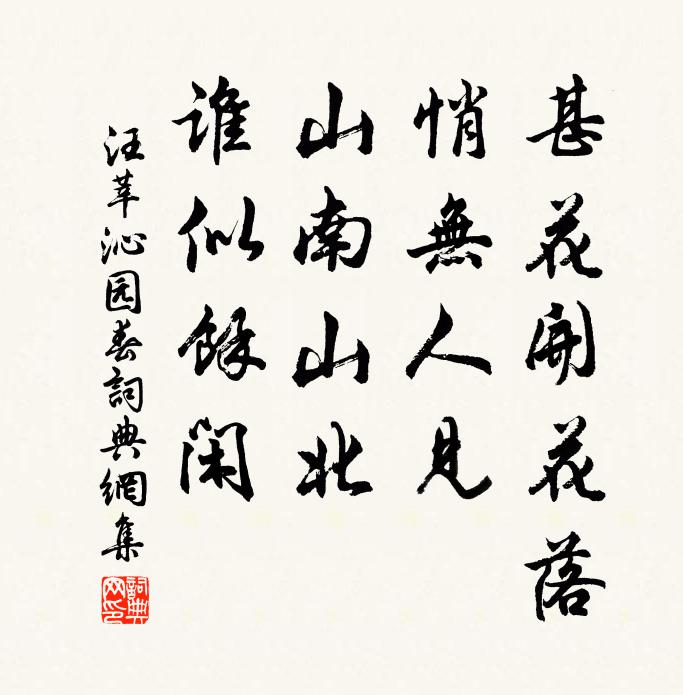 甚花開花落
悄無人見
山南山北
誰似餘閑
汪莘沁园春詞典網集
詞典網印